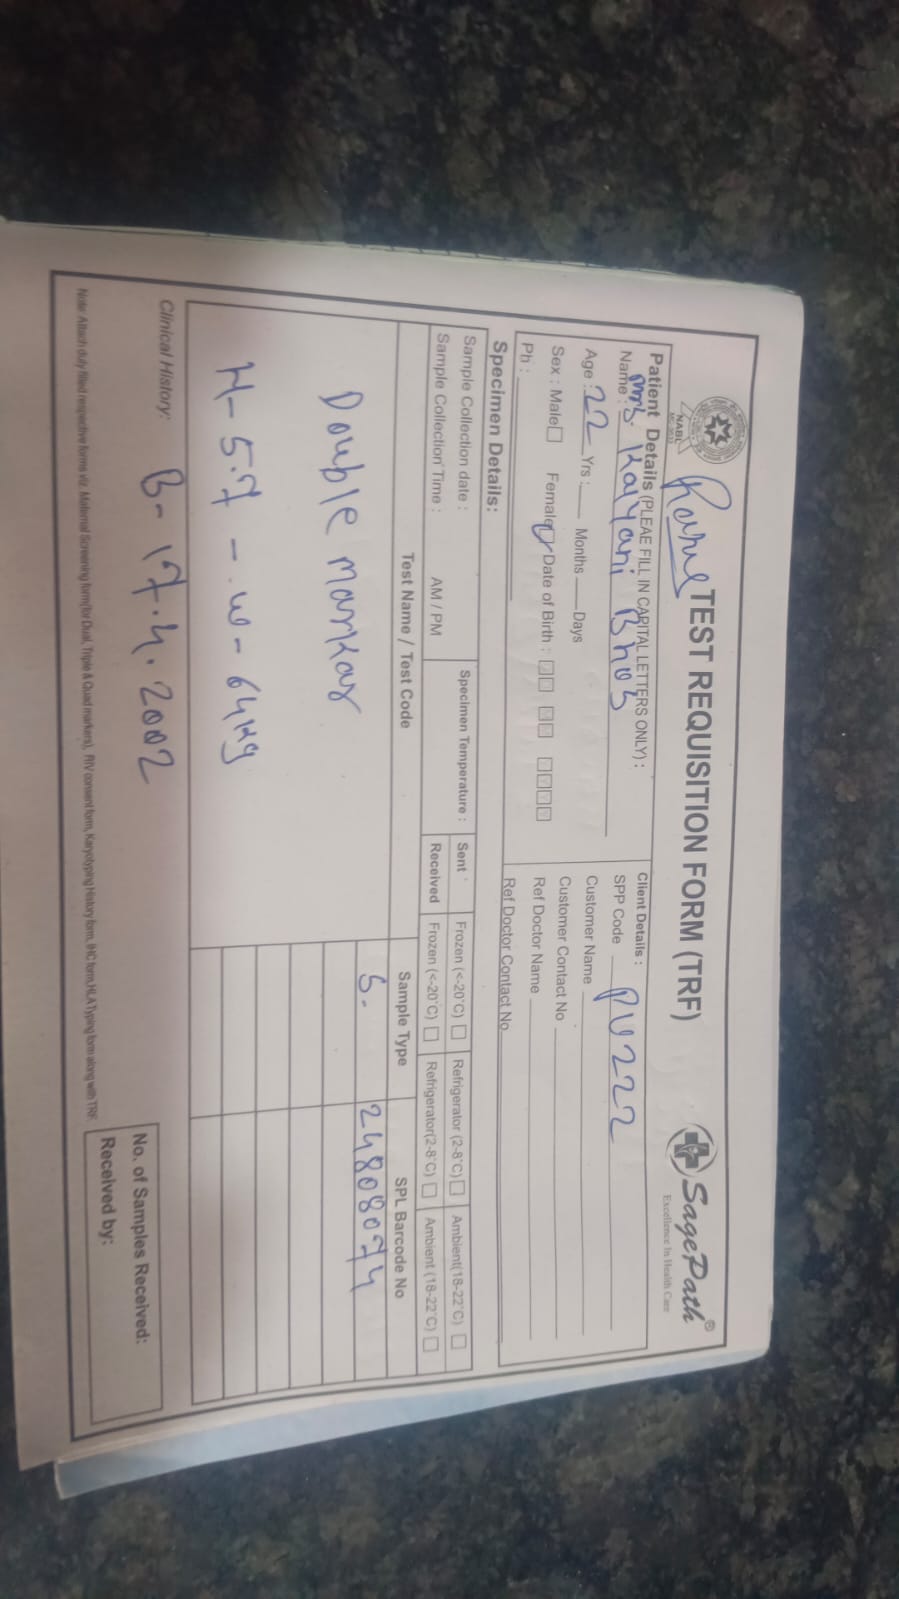 TEST REQUISITION FORM (TRF)
SagePath®
Excellence In Health Care
NABL
Patient Details (PLEAE FILL IN CAPITAL LETTERS ONLY) :
Name : Mrs. Kalyani Bhos
Age : 22 Yrs : Months Days
Sex : Male Female Date of Birth :
Ph :
Client Details :
SPP Code PU222
Customer Name
Customer Contact No
Ref Doctor Name
Ref Doctor Contact No
Specimen Details:
Sample Collection date :
Sample Collection Time : AM / PM
Specimen Temperature :
Sent Frozen (<-20°C) Refrigerator (2-8°C) Ambient(18-22°C)
Received Frozen (<-20°C) Refrigerator(2-8°C) Ambient (18-22°C)
Test Name / Test Code Sample Type SPL Barcode No
S. 24808074
Double markar
H- 5.7 - w - 64kg
Clinical History: B- 17.4.2002
No. of Samples Received:
Received by:
Note: Attach duly filled respective forms viz. Maternal Screening form(for Dual, Triple & Quad markers), HIV consent form, Karyotyping History form, IHC form,HLA Typing form along with TRF.